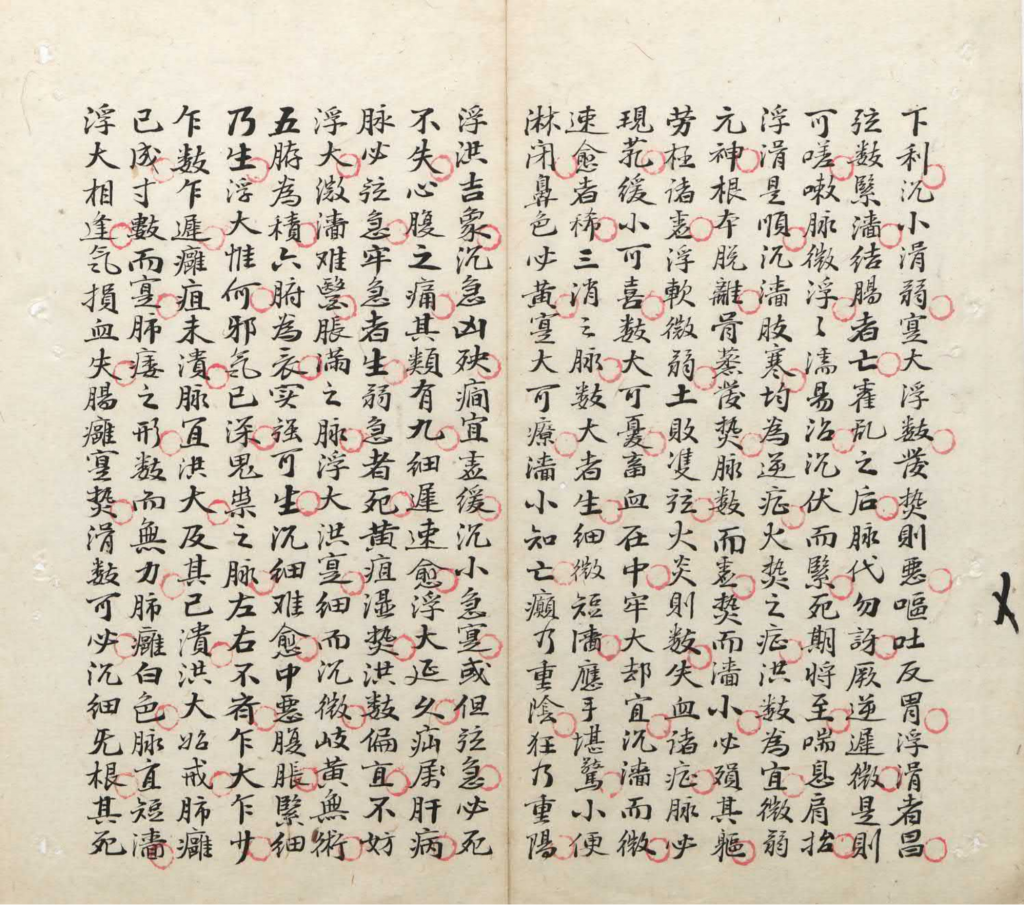 下利沉小滑弱寔大浮数發𤍠則惡嘔吐反胃浮滑者昌
弦数緊濇结腸者亡霍乱之后脉代勿訝厥逆遲微是則
可嗟嗽脉微浮〻濡易治沉伏而緊死期將至喘息肩抬
浮滑是順沉濇肢寒均為逆症火𤍠之症洪数為宜微弱
元神根本脱離骨蒸發𤍠脉数而虚𤍠而濇小必殞其軀
劳极诸虚浮軟微弱土敗双弦火炎則数失血诸症脉必
現芤缓小可喜数大可憂畜血在中牢大却宜沉濇而微
速愈者稀三消之脉数大者生细微短濇應手堪驚小便
淋闭鼻色必黄寔大可療濇小知亡癲乃重陰狂乃重陽
浮洪吉象沉急凶殃癇宜虚缓沉小急寔或但弦急必死
不失心腹之痛其類有九细遲速愈浮大延久疝属肝病
脉必弦急牢急者生弱急者死黄疸湿𤍠洪数偏宜不妨
浮大微濇难醫脹满之脉浮大洪寔细而沉微岐黄無術
五脏為積六腑為衣实强可生沉细难愈中惡腹脹緊细
乃生浮大惟何邪气已深鬼祟之脉左右不齐乍大乍廿
乍数乍遲癰疽未潰脉宜洪大及其已潰洪大始戒肺癰
已成寸數而寔肺痿之形数而無力肺癰白色脉宜短濇
浮大相逢气損血失腸癰寔𤍠滑数可必沉细无根其死